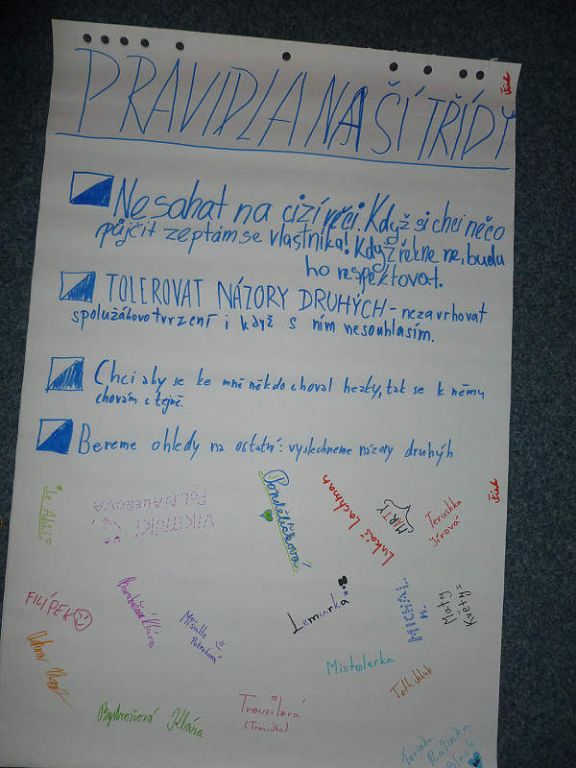 PRAVIDLA NAŠÍ TŘÍDY
Nesahat na cizí věci. Když si chci něco
půjčit zeptám se vlastníka! Když řekne ne, budu
ho respektovat.
TOLEROVAT NÁZORY DRUHÝCH - nezavrhovat
spolužákovo tvrzení i když s ním nesouhlasím.
Chci aby se ke mně někdo choval hezky, tak se k němu
chovám stejně.
Bereme ohledy na ostatní: vyslechneme názory druhýh
VIKTORKA
Pondělíčková
Lukáš Lachman
MÁRTY
Terushka
Jírová
FILÍPEK
Lemurka
Máty
Květys
Mistolerka
Klára
Trousilová